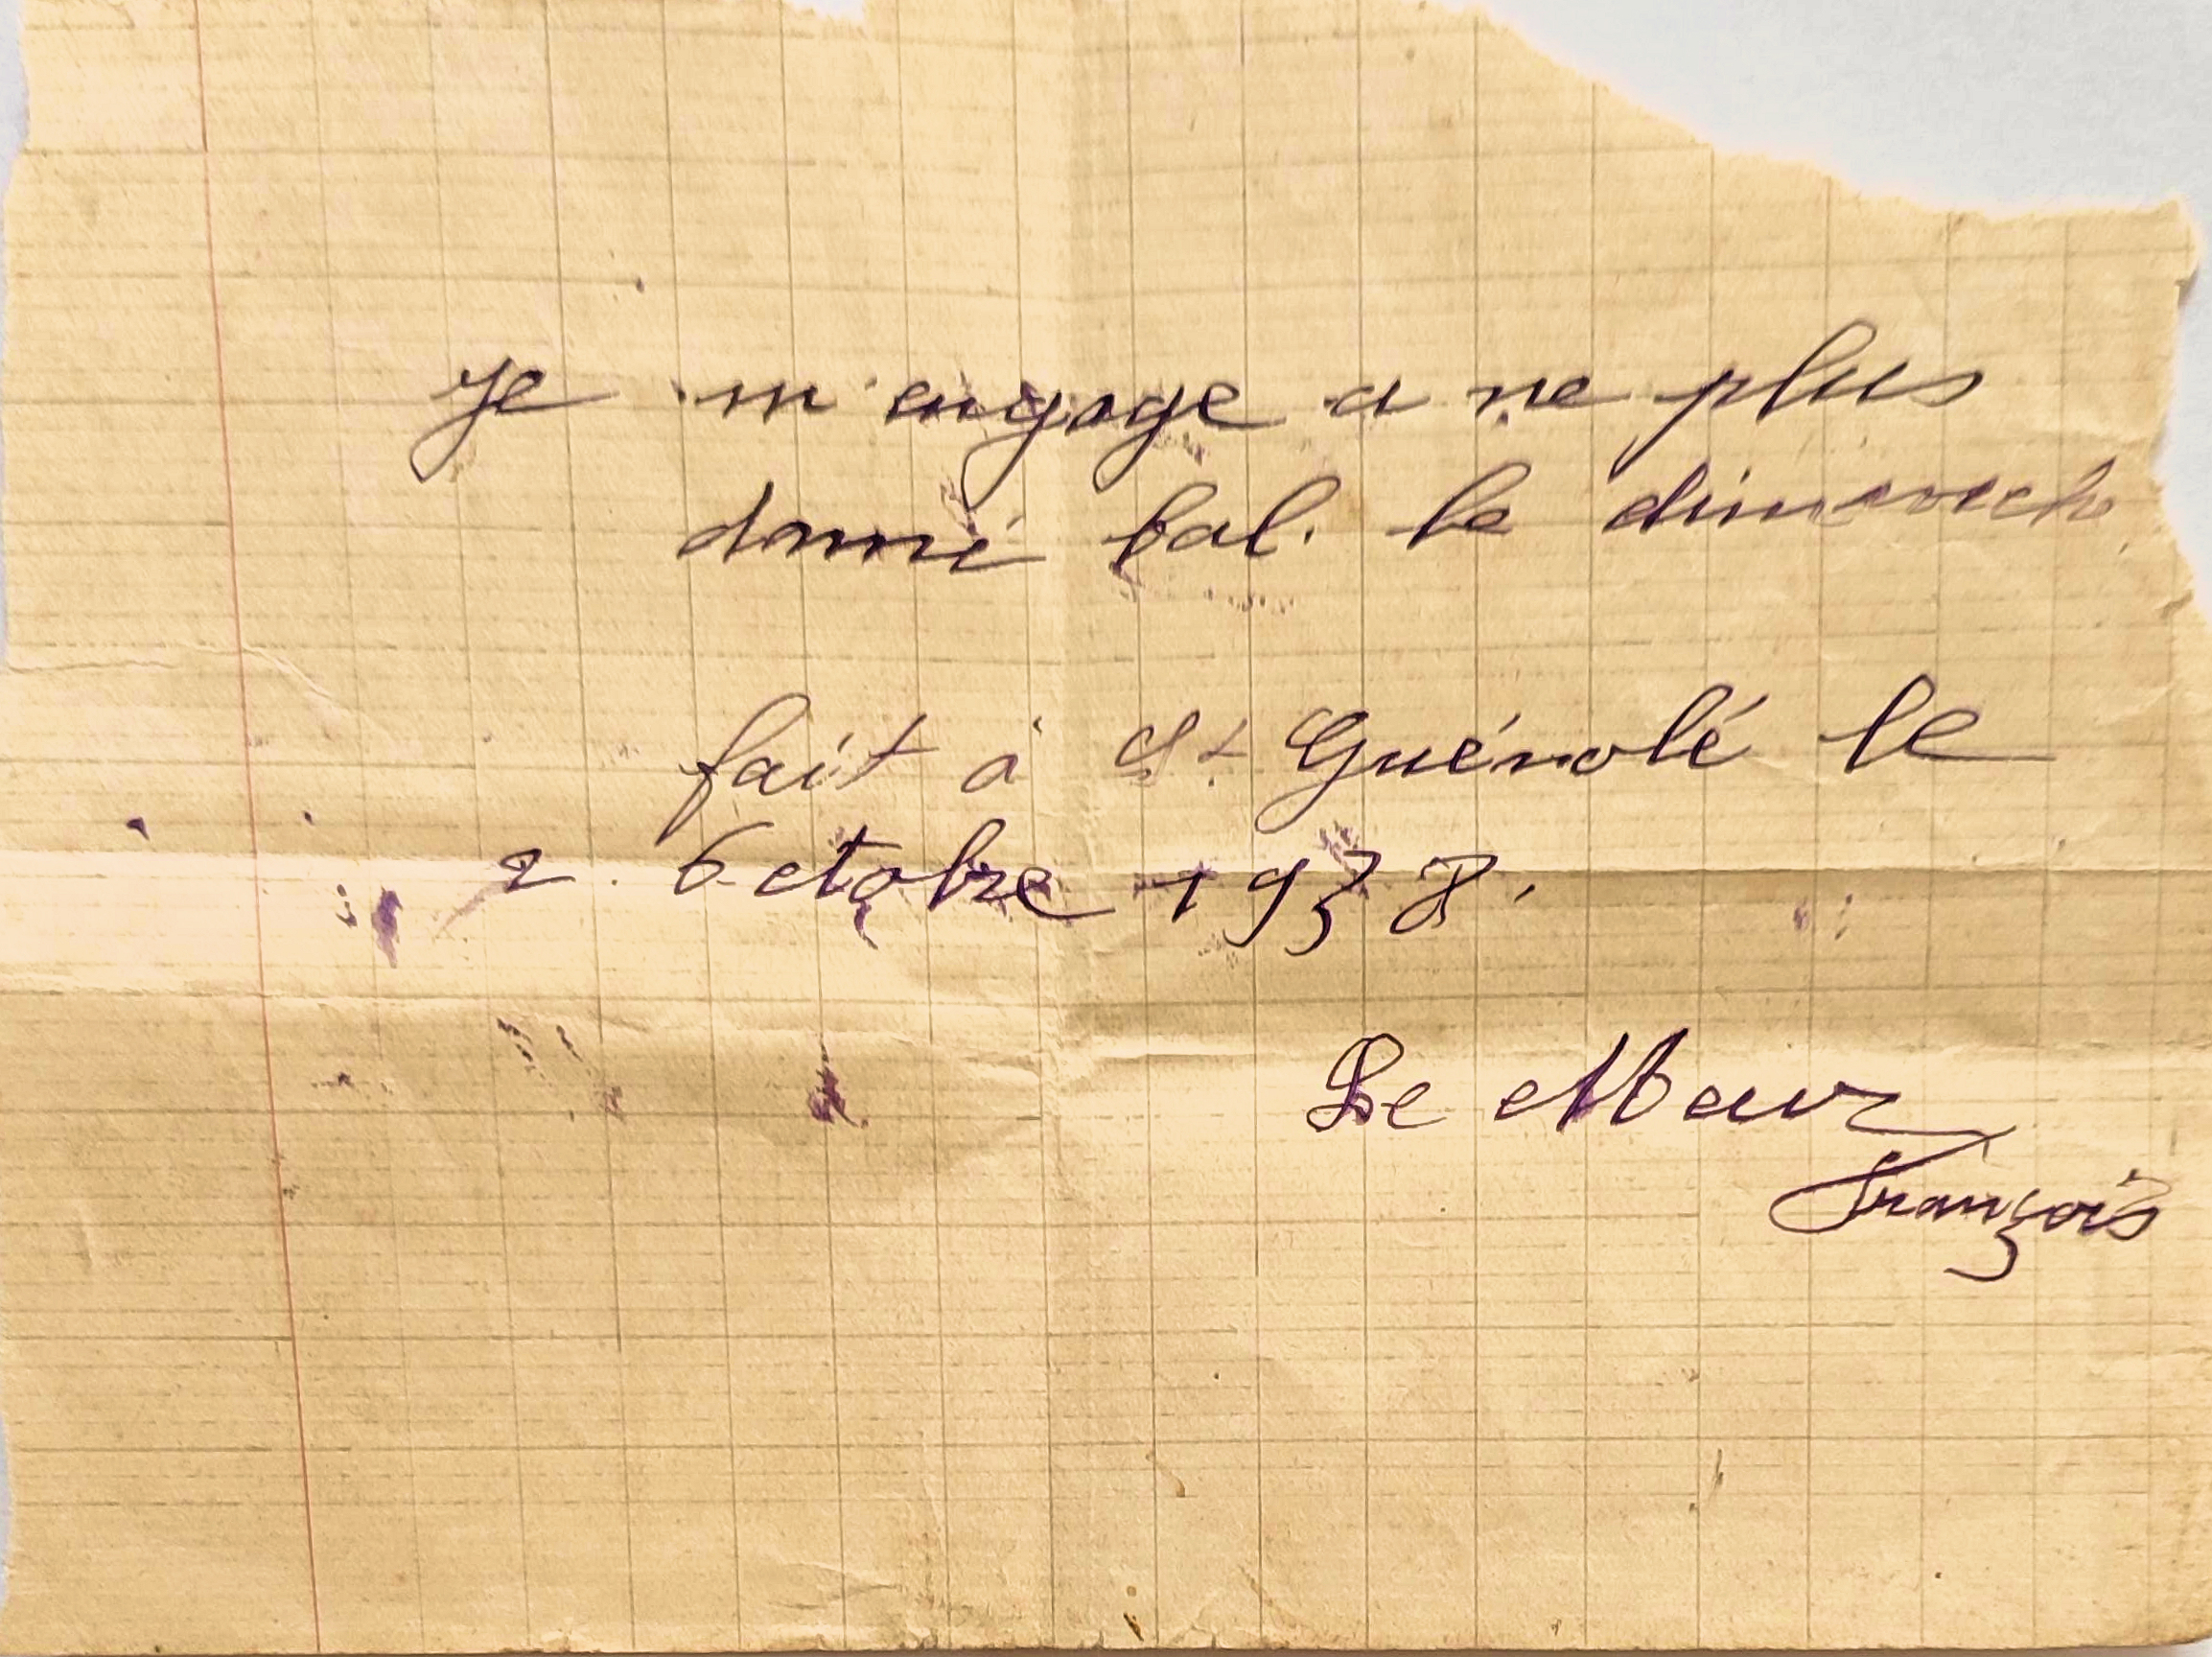 Je m'engage a ne plus
donné bal. le dimanche
fait à St Guénolé le
2. Octobre 1938.
Le Meur
François